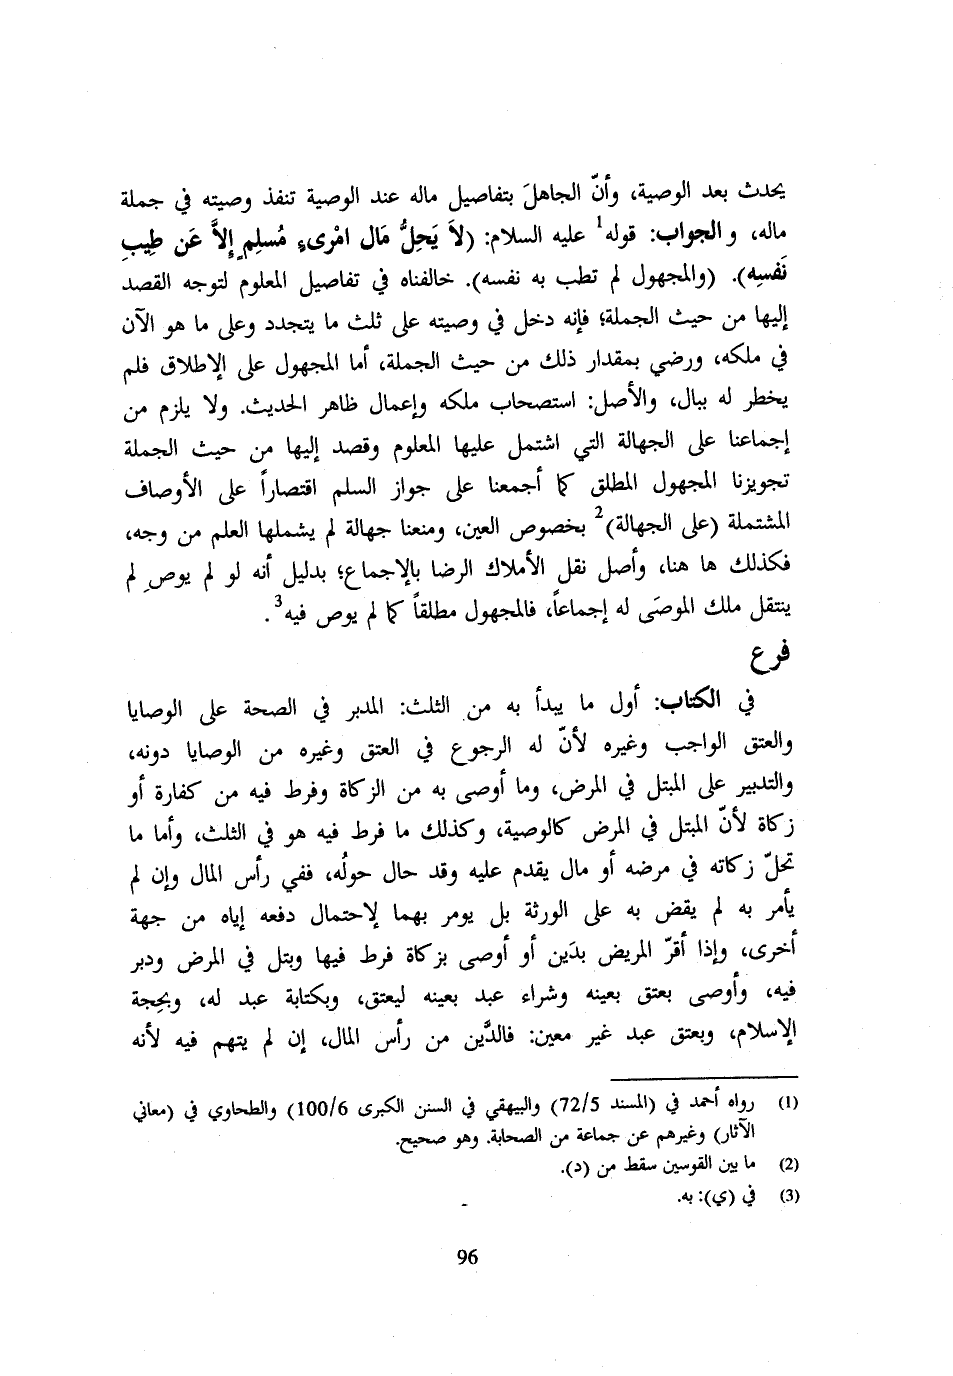 يحدث بعد الوصية، وأنّ الجاهلَ بتفاصيل ماله عند الوصية تنفذ وصيته في جملة
ماله، والجواب: قوله1 عليه السلام: (لاَ يَحِلُّ مَال امْرىءٍ مُسلِمٍ إِلاَّ عَن طِيبِ
نَفسِه). (والمجهول لم تطب به نفسه). خالفناه في تفاصيل المعلوم لتوجه القصد
إليها من حيث الجملة؛ فإنه دخل في وصيته على ثلث ما يتجدد وعلى ما هو الآن
في ملكه، ورضي بمقدار ذلك من حيث الجملة، أما المجهول على الإطلاق فلم
يخطر له ببال، والأصل: استصحاب ملكه وإعمال ظاهر الحديث. ولا يلزم من
إجماعنا على الجهالة التي اشتمل عليها المعلوم وقصد إليها من حيث الجملة
تجويزنا المجهول المطلق كما أجمعنا على جواز السلم اقتصاراً على الأوصاف
المشتملة (على الجهالة)2 بخصوص العين، ومنعنا جهالة لم يشملها العلم من وجه،
فكذلك ها هنا، وأصل نقل الأملاك الرضا بالإجماع؛ بدليل أنه لو لم يوصِ لم
ينتقل ملك الموصَى له إجماعاً، فالمجهول مطلقاً كما لم يوص فيه3.
فرع
في الكتاب: أول ما يبدأ به من الثلث: المدبر في الصحة على الوصايا
والعتق الواجب وغيره لأنّ له الرجوع في العتق وغيره من الوصايا دونه،
والتدبير على المبتل في المرض، وما أوصى به من الزكاة وفرط فيه من كفارة أو
زكاة لأنّ المبتل في المرض كالوصية، وكذلك ما فرط فيه هو في الثلث، وأما ما
تحلّ زكاته في مرضه أو مال يقدم عليه وقد حال حولُه، ففي رأس المال وإن لم
يأمر به لم يقض به على الورثة بل يومر بهما لاحتمال دفعه إياه من جهة
أخرى، وإذا أقرّ المريض بدَين أو أوصى بزكاة فرط فيها وبتل في المرض ودبر
فيه، وأوصى بعتق بعينه وشراء عبد بعينه ليعتق، وبكتابة عبد له، وبحِجة
الإسلام، وبعتق عبد غير معين: فالدَّين من رأس المال، إن لم يتهم فيه لأنه
(1) رواه أحمد في (المسند 72/5) والبيهقي في السنن الكبرى 100/6) والطحاوي في (معاني
الآثار) وغيرهم عن جماعة من الصحابة. وهو صحيح.
(2) ما بين القوسين سقط من (د).
(3) في (ي): به.
96